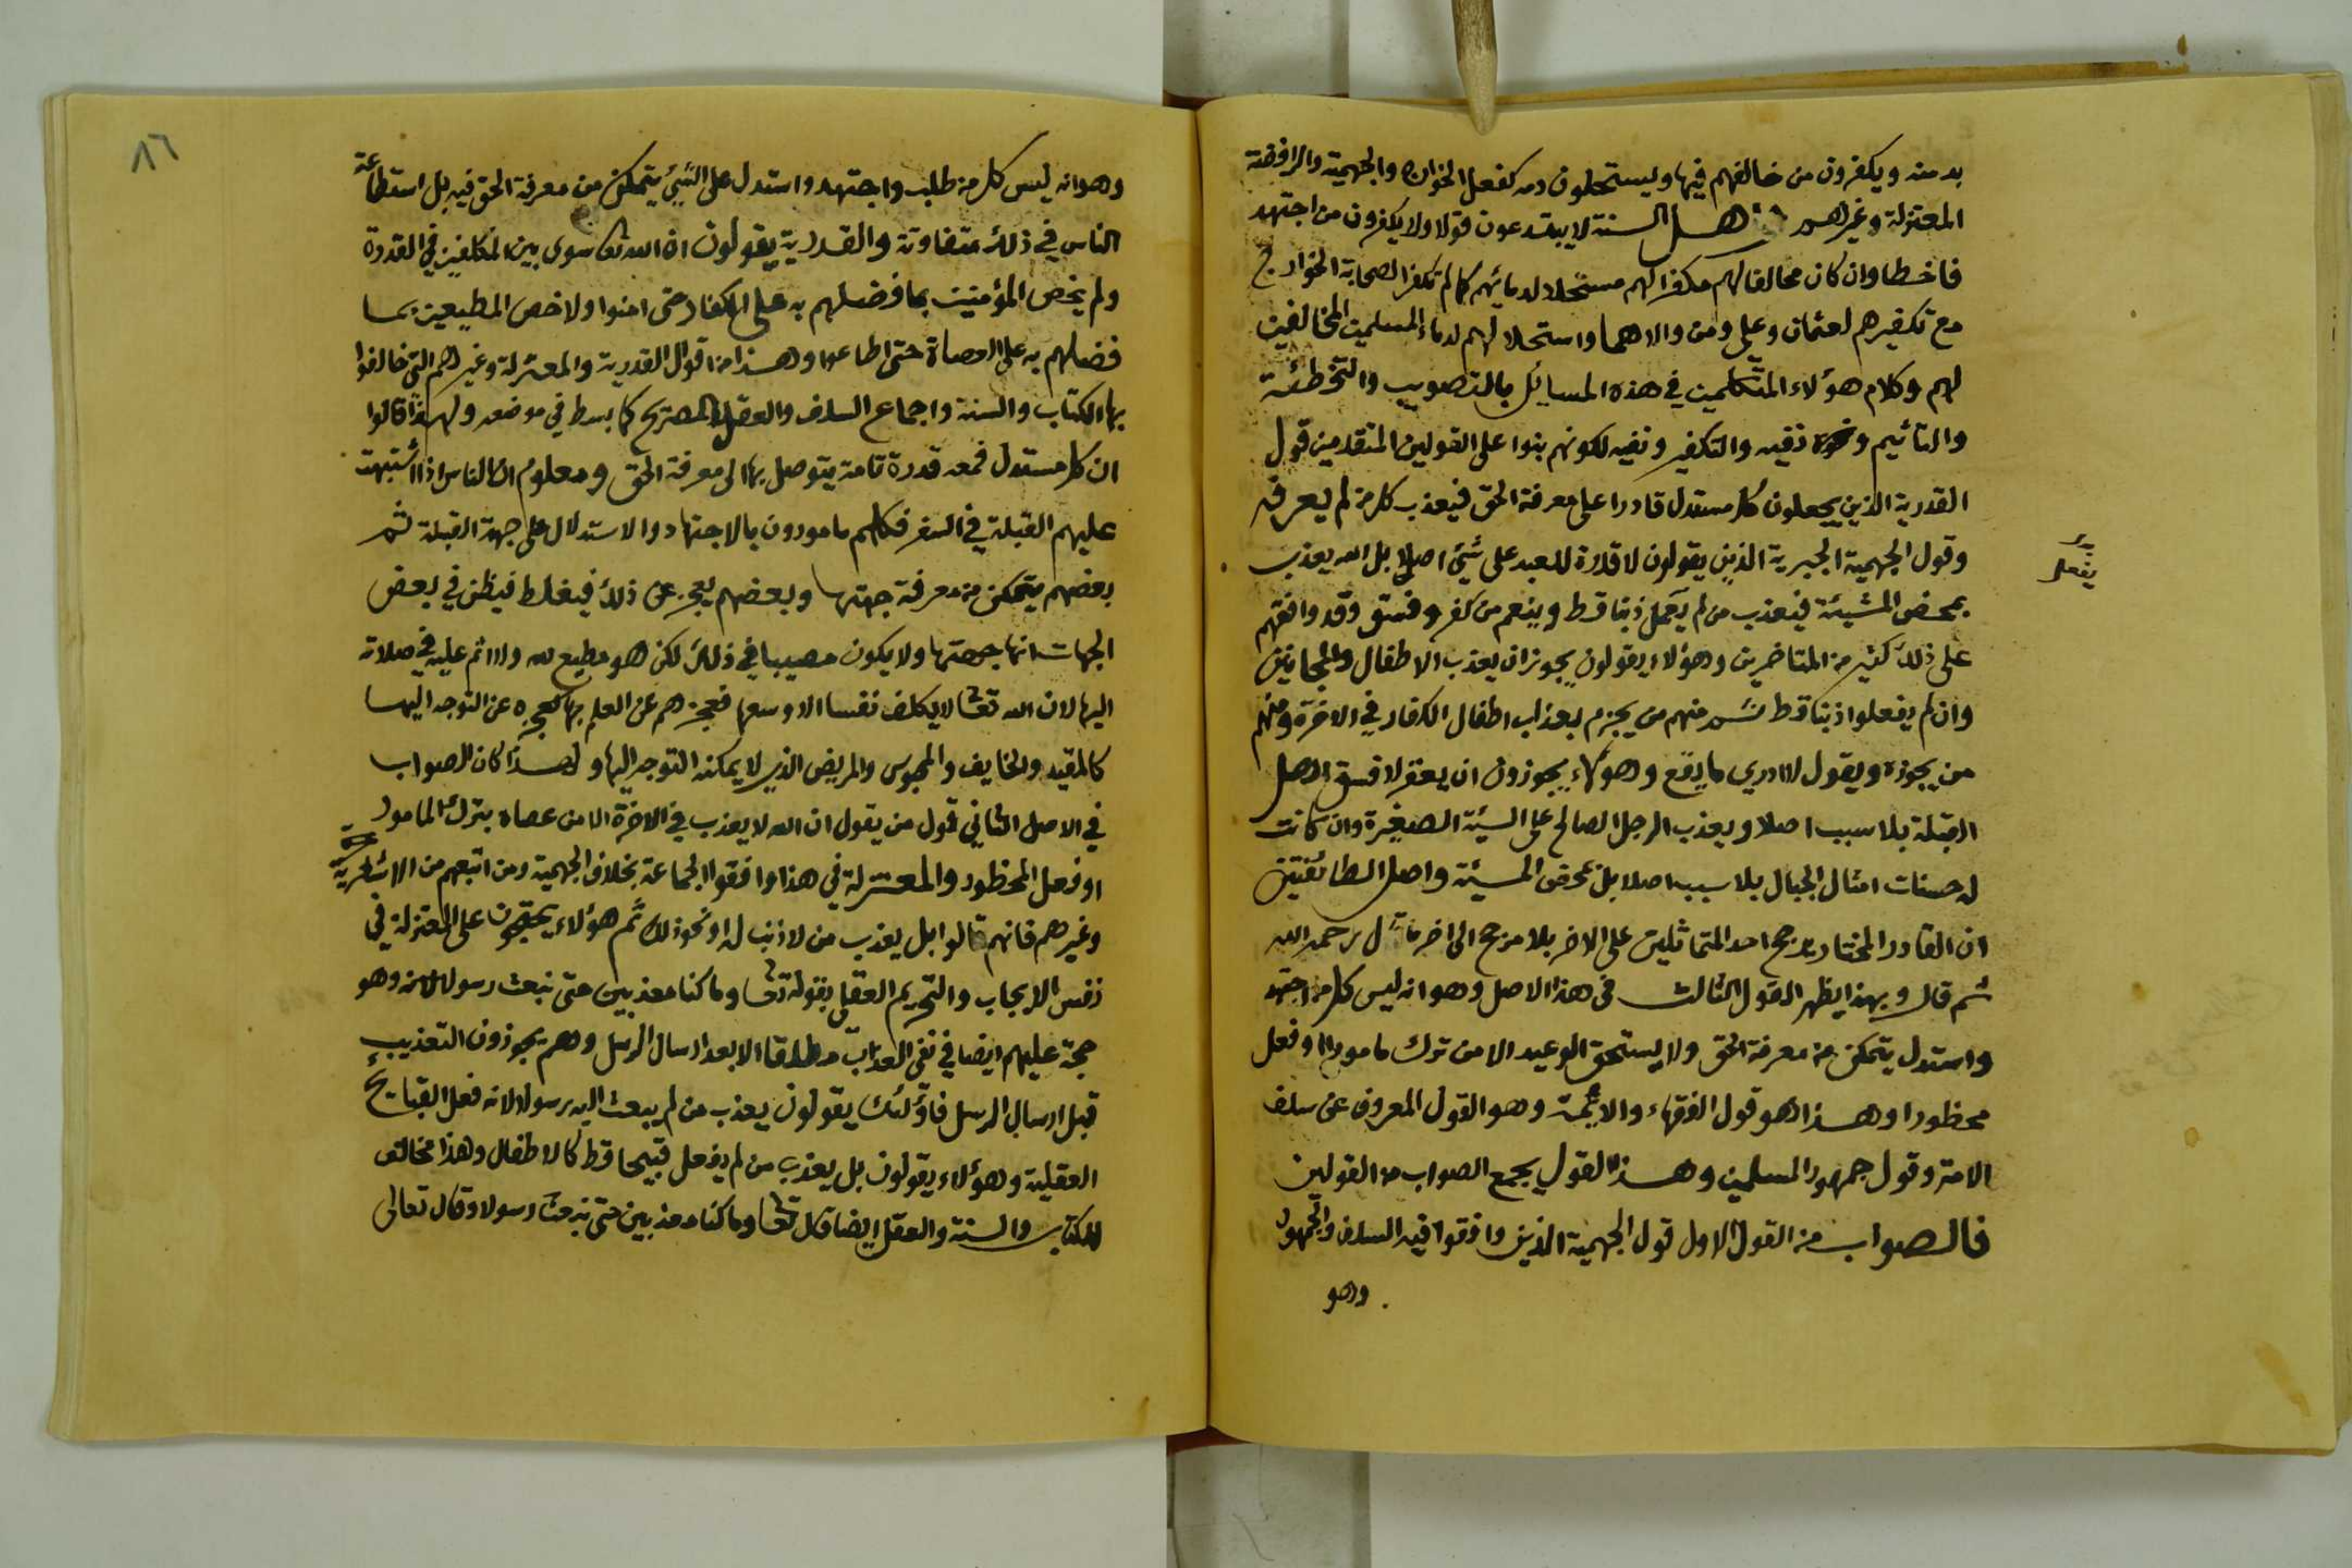 بدمته ويكفرون من خالفهم فيها ويستحلون دمه كفعل الخوارج والجهمية والرافضة
المعتزلة وغيرهم واهل السنة لا يبتدعون قولا ولا يكفرون من اجتهد
فاخطا وان كان مخالفا لهم مكفرا لهم مستحلا لدمائهم كما لم تكفر الصحابة الخوارج
مع تكفيرهم لعثمان وعلي ومن والاهما واستحلالهم لدماء المسلمين المخالفين
لهم وكلام هؤلاء المتكلمين في هذه المسايل بالتصويب والتخطئة
والتاثيم ونفيه والتكفير ونفيه لكونهم بنوا على القولين المتقدمين قول
القدرية الذين يجعلون كل مستدل قادرا على معرفة الحق فيعذب كل من لم يعرفه
وقول الجهمية الجبرية الذين يقولون لا قدرة للعبد على شيئ اصلا بل الله يعذب
بمحض المشيئة فيعذب من لم يعمل ذنبا قط وينعم من كفر وفسق وقد وافقهم
يفعل
على ذلك كثير من المتاخرين وهؤلاء يقولون يجوز ان يعذب الاطفال والمجانين
وان لم يفعلوا ذنبا قط ثم منهم من يجزم بعذاب اطفال الكفار في الاخرة ومنهم
من يجوزه ويقول لا ادري ما يقع وهؤلاء يجوزون ان يغفر لافسق اهل
القبلة بلا سبب اصلا ويعذب الرجل الصالح على السيئة الصغيرة وان كانت
له حسنات امثال الجبال بلا سبب اصلا بل بمحض المشيئة واصل الطائفتين
ان القادر المختار يرجح احد المتماثلين على الاخر بلا مرجح الى اخر ما قال رحمه الله
ثم قال وبهذا يظهر القول الثالث في هذا الاصل وهو انه ليس كل من اجتهد
واستدل يتمكن من معرفة الحق ولا يستحق الوعيد الا من ترك مامورا او فعل
محظورا وهذا هو قول الفقهاء والائمة وهو القول المعروف عن سلف
الامة وقول جمهور المسلمين وهذا القول يجمع الصواب من القولين
فالصواب من القول الاول قول الجهمية الذين وافقوا فيه السلف والجمهور
وهو
٨٦
وهو انه ليس كل من طلب واجتهد واستدل على الشيئ يتمكن من معرفة الحق فيه بل استطاعة
الناس في ذلك متفاوتة والقدرية يقولون ان الله تعا سوى بين المكلفين في القدرة
ولم يخص المؤمنين بما فضلهم به على الكفار حتى امنوا ولا خص المطيعين بما
فضلهم به على العصاة حتى اطاعوا وهذا من اقوال القدرية والمعتزلة وغيرهم التي خالفوا
بها الكتاب والسنة واجماع السلف والعقل الصريح كما بسط في موضعه ولهذا قالوا
ان كل مستدل فمعه قدرة تامة يتوصل بها الى معرفة الحق ومعلوم ان الناس اذا اشتبهت
عليهم القبلة في السفر فكلهم مامورون بالاجتهاد والاستدلال على جهة القبلة ثم
بعضهم يتمكن من معرفة جهتها وبعضهم يعجز عن ذلك فيغلط فيظن في بعض
الجهات انها جهتها ولا يكون مصيبا في ذلك لكن هو مطيع لله ولا اثم عليه في صلاته
اليها لان الله تعا لا يكلف نفسا الا وسعها فعجزهم عن العلم بها كعجزه عن التوجه اليها
كالمقيد والخايف والمحبوس والمريض الذي لا يمكنه التوجه اليها ولهذا كان الصواب
في الاصل الثاني قول من يقول ان الله لا يعذب في الاخرة الا من عصاه بترك المامور
او فعل المحظور والمعتزلة في هذا وافقوا الجماعة بخلاف الجهمية ومن اتبعهم من الاشعرية
وغيرهم فانهم قالوا بل يعذب من لا ذنب له او نحو ذلك ثم هؤلاء يحتجون على المعتزلة في
نفس الايجاب والتحريم العقلي بقوله تعا وما كنا معذبين حتى نبعث رسولا وهو
حجة عليهم ايضا في نفي العذاب مطلقا الا بعد ارسال الرسل وهم يجوزون التعذيب
قبل ارسال الرسل فاولئك يقولون يعذب من لم يبعث اليه رسولا لانه فعل القبايح
العقلية وهؤلاء يقولون بل يعذب من لم يفعل قبيحا قط كالاطفال وهذا مخالف
للكتاب والسنة والعقل ايضا قال تعا وما كنا معذبين حتى نبعث رسولا وقال تعالى